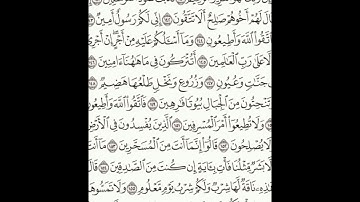 قَالَ لَهُمْ أَخُوهُمْ صَٰلِحٌ أَلَا تَتَّقُونَ ١٤٢ إِنِّى لَكُمْ رَسُولٌ أَمِينٌ
فَٱتَّقُوا۟ ٱللَّهَ وَأَطِيعُونِ ١٤٤ وَمَآ أَسْـَٔلُكُمْ عَلَيْهِ مِنْ أَجْرٍ إِنْ أَجْرِىَ
إِلَّا عَلَىٰ رَبِّ ٱلْعَٰلَمِينَ ١٤٥ أَتُتْرَكُونَ فِى مَا هَٰهُنَآ ءَامِنِينَ ١٤٦
فِى جَنَّٰتٍ وَعُيُونٍ ١٤٧ وَزُرُوعٍ وَنَخْلٍ طَلْعُهَا هَضِيمٌ ١٤٨
وَتَنْحِتُونَ مِنَ ٱلْجِبَالِ بُيُوتًا فَٰرِهِينَ ١٤٩ فَٱتَّقُوا۟ ٱللَّهَ وَأَطِيعُونِ
١٥٠ وَلَا تُطِيعُوٓا۟ أَمْرَ ٱلْمُسْرِفِينَ ١٥١ ٱلَّذِينَ يُفْسِدُونَ فِى ٱلْأَرْضِ
وَلَا يُصْلِحُونَ ١٥٢ قَالُوٓا۟ إِنَّمَآ أَنتَ مِنَ ٱلْمُسَحَّرِينَ ١٥٣ مَآ أَنتَ
إِلَّا بَشَرٌ مِّثْلُنَا فَأْتِ بِـَٔايَةٍ إِن كُنتَ مِنَ ٱلصَّٰدِقِينَ ١٥٤ قَالَ
هَٰذِهِۦ نَاقَةٌ لَّهَا شِرْبٌ وَلَكُمْ شِرْبُ يَوْمٍ مَّعْلُومٍ ١٥٥ وَلَا تَمَسُّوهَا